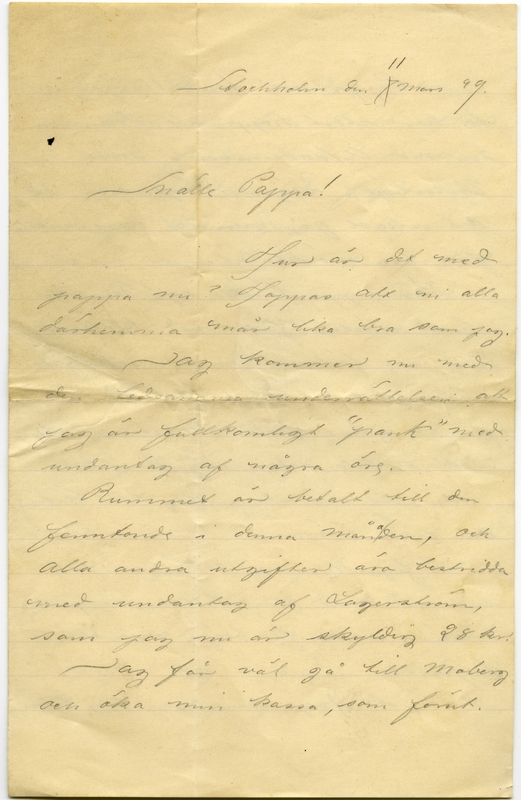 Stockholm den 11 mars 99.
Snälle Pappa!
Hur är det med
pappa nu? Hoppas att ni alla
därhemma mår lika bra som jag.
Jag kommer nu med
den ledsamma underrättelsen att
jag är fullkomligt "pank" med
undantag af några öre.
Rummet är betalt till den
femtonde i denna månaden, och
alla andra utgifter äro bestridda
med undantag af Lagerström,
som jag nu är skyldig 28 kr.
Jag får väl gå till Moberg
och öka min kassa, som förut.